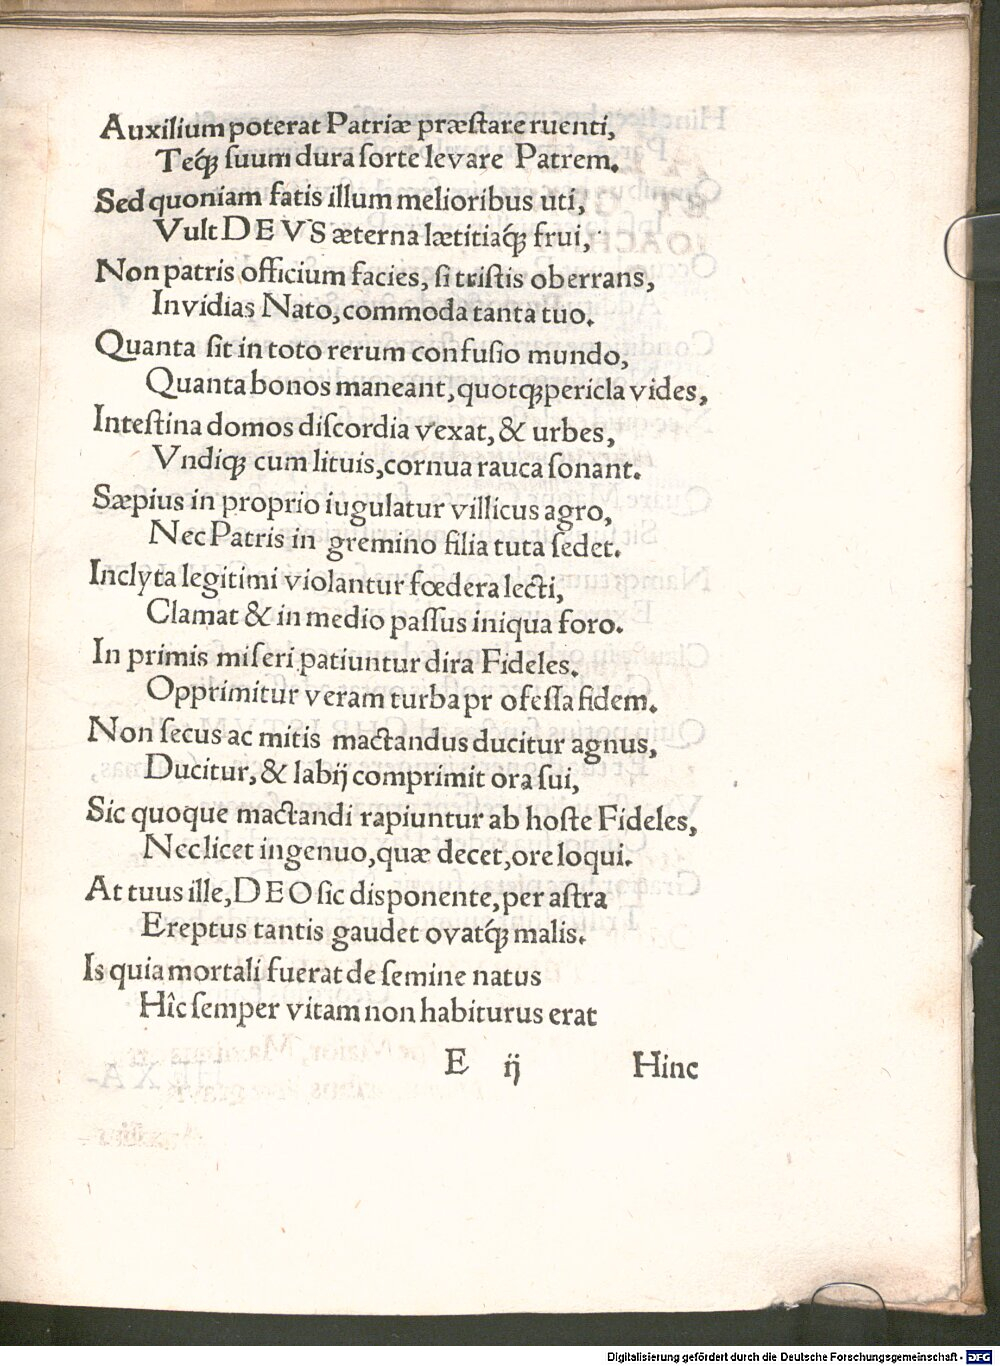 Auxilium poterat Patriæ præſtare ruenti,
Teq́ꝫ ſuum dura ſorte levare Patrem.
Sed quoniam fatis illum melioribus uti,
Vult DEVS æterna lætitiaq́ꝫ frui,
Non patris officium facies, ſi triſtis oberrans,
Invidias Nato, commoda tanta tuo.
Quanta ſit in toto rerum confuſio mundo,
Quanta bonos maneant, quotqꝫ pericla vides,
Inteſtina domos diſcordia vexat, & urbes,
Vndiqꝫ cum lituis, cornua rauca ſonant.
Sæpius in proprio iugulatur villicus agro,
Nec Patris in gremino filia tuta ſedet.
Inclyta legitimi violantur fœdera lecti,
Clamat & in medio paſſus iniqua foro.
In primis miſeri patiuntur dira Fideles.
Opprimitur veram turba pr ofeſſa fidem.
Non ſecus ac mitis mactandus ducitur agnus,
Ducitur, & labij comprimit ora ſui,
Sic quoque mactandi rapiuntur ab hoſte Fideles,
Nec licet ingenuo, quæ decet, ore loqui.
At tuus ille, DEO ſic disponente, per aſtra
Ereptus tantis gaudet ovatq́ꝫ malis.
Is quia mortali fuerat de ſemine natus
Hîc ſemper vitam non habiturus erat
E ij Hinc
Digitalisierung gefördert durch die Deutsche Forschungsgemeinschaft - DFG